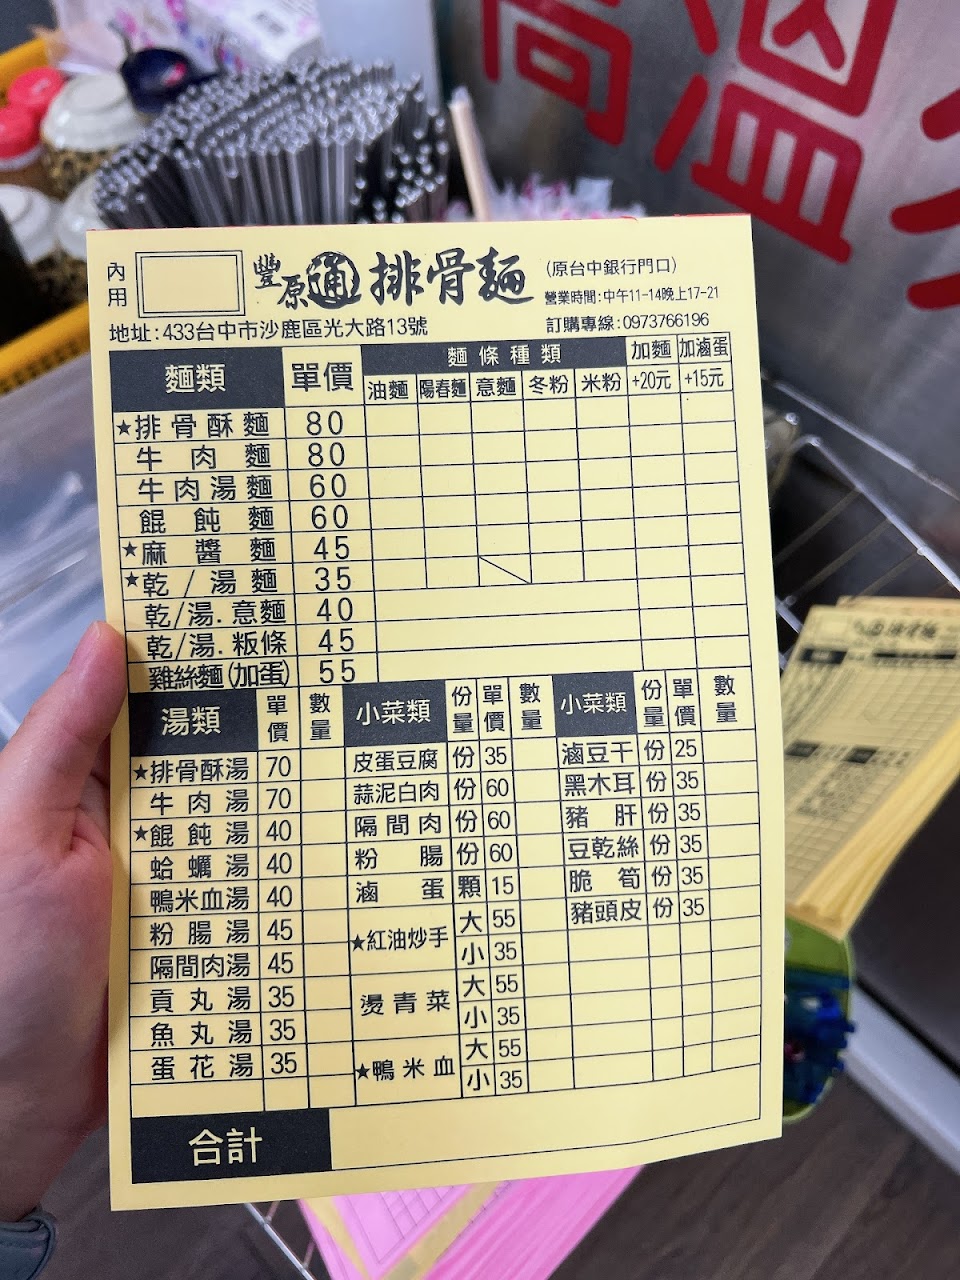 高溫
內用
豐原通排骨麵
(原台中銀行門口)
營業時間:中午11-14晚上17-21
地址:433台中市沙鹿區光大路13號
訂購專線:0973766196
麵類 單價 麵條種類 加麵 加滷蛋
油麵 陽春麵 意麵 冬粉 米粉 +20元 +15元
★排骨酥麵 80
牛肉麵 80
牛肉湯麵 60
餛飩麵 60
★麻醬麵 45
★乾/湯麵 35
乾/湯.意麵 40
乾/湯.粄條 45
雞絲麵(加蛋) 55
湯類 單價 數量
★排骨酥湯 70
牛肉湯 70
★餛飩湯 40
蛤蠣湯 40
鴨米血湯 40
粉腸湯 45
隔間肉湯 45
貢丸湯 35
魚丸湯 35
蛋花湯 35
小菜類 份量 單價 數量
皮蛋豆腐 份 35
蒜泥白肉 份 60
隔間肉 份 60
粉腸 份 60
滷蛋 顆 15
★紅油炒手 大 55
小 35
燙青菜 大 55
小 35
★鴨米血 大 55
小 35
小菜類 份量 單價 數量
滷豆干 份 25
黑木耳 份 35
豬肝 份 35
豆乾絲 份 35
脆筍 份 35
豬頭皮 份 35
合計